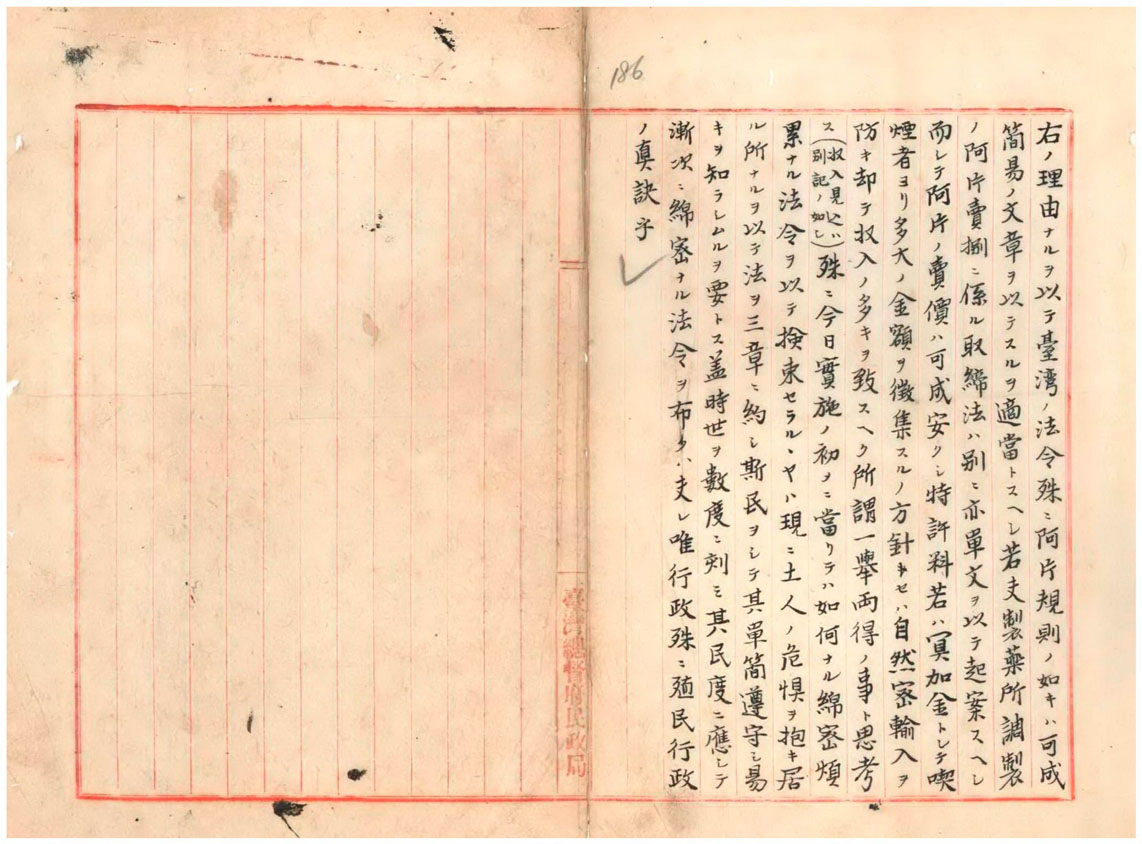 186
右ノ理由ナルヲ以テ臺湾ノ法令殊ニ阿片規則ノ如キハ可成
簡易ノ文章ヲ以テスルヲ適當トスヘシ若夫製薬所調製
ノ阿片賣捌ニ係ル取締法ハ別ニ亦單文ヲ以テ起案スヘシ
而シテ阿片ノ賣價ハ可成安クシ特許料若ハ冥加金トシテ喫
煙者ヨリ多大ノ金額ヲ徴集スルノ方針ナセハ自然密輸入ヲ
防キ却テ収入ノ多キヲ致スヘク所謂一擧両得ノ事ト思考
ス(収入見込ハ別記ノ如シ)殊ニ今日實施ノ初メニ當リテハ如何ナル綿密煩
累ナル法令ヲ以テ検束セラルヽヤハ現ニ土人ノ危惧ヲ抱キ居
ル所ナルヲ以テ法ヲ三章ニ約シ斯民ヲシテ其單簡遵守シ易
キヲ知ラシムルヲ要トス盖時世ヲ數度ニ刻ミ其民度ニ應シテ
漸次ニ綿密ナル法令ヲ布クハ夫レ唯行政殊ニ殖民行政
ノ真訣乎
臺灣總督府民政局